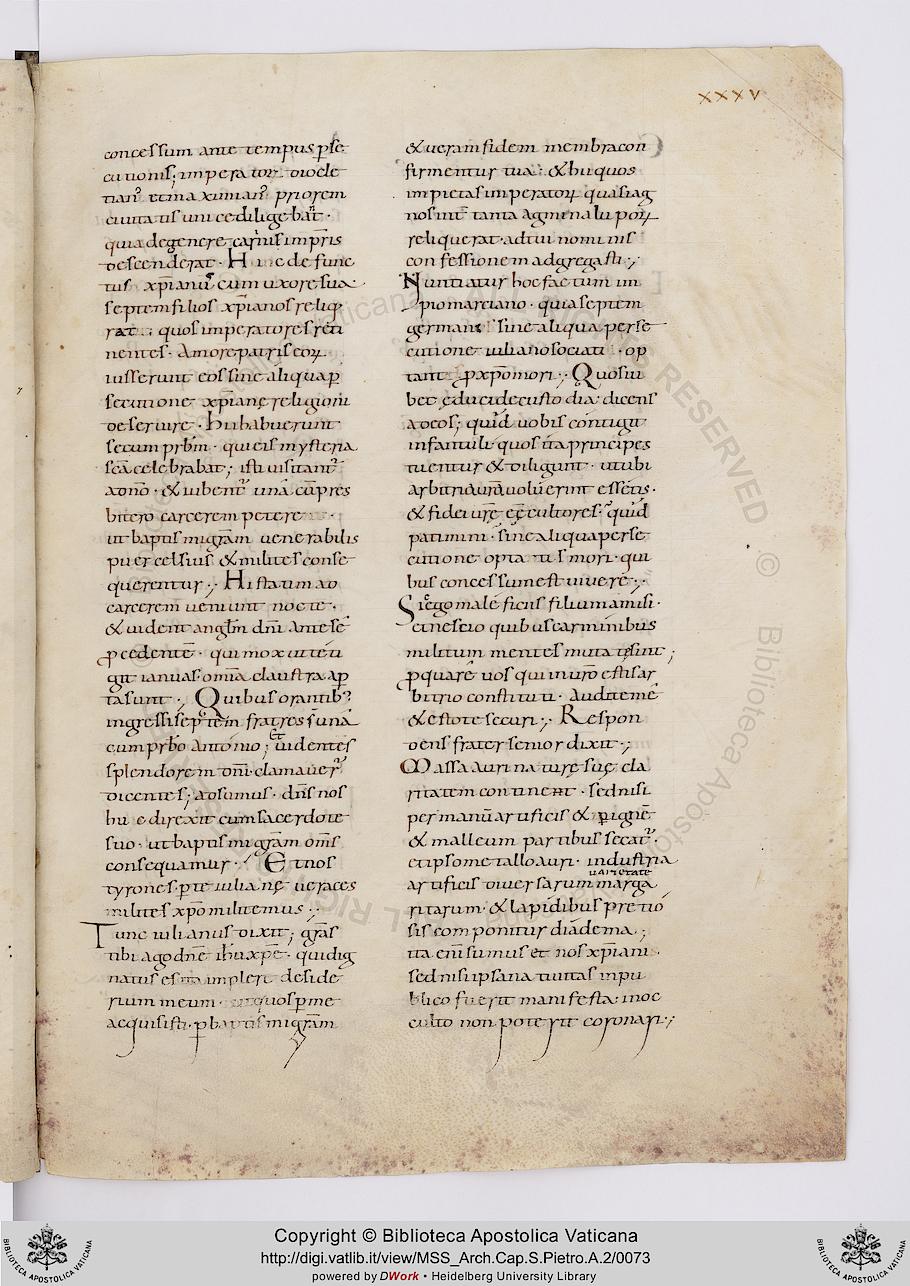 xxxv
concessum ante tempus pse
cutionis; imperator diocle
tian' et maximian' priorem
ciuitatis uni ce dilige bant ·
quia degenere carinis impris
descenderat · Hinc defunc
tus xpianus cum uxore sua
septem filios xpianos reliq
rat · quos imperatores reti
nentes · Amore patris eor
iusserunt eos sine aliqua p
secutione xpianę religioni
deseruire · hi habuerunt
secum prbm · qui eis mysteria
sca celebrabat; isti uisitant'
a dno · & iubent' una cu pres
bitero carcerem petere ·
ut baptismi gram uenerabilis
puer celsius & milites conse
querentur ·, Hi statim ad
carcerem ueniunt nocte ·
& uident anglm dni ante se
pcedente · qui mox ut teti
git ianuas · omia claustra ap
ta sunt · Quibus orantib'
ingressi septem fratres s una
cum prbo Antonio; et uidentes
splendorem dni · clamauer'
dicentes; adsumus · dns nos
huc direxit cum sacerdote
suo · ut baptismi gram oms
consequamur · Et nos
tyrones · p te iuliane ueraces
milites xpo militemus ·,
Tunc iulianus dixit; gras
tibi ago dne ihu xpe · qui dig
natus es ita impleri deside
rium meum · ut quos p me
acquisisti · p baptismi gram
& ueram fidem membra con
firmentur tua · & hi quos
impietas imperator quasi ag
nos int' tanta agmina lupor
reliquerat · ad tui nominis
confessionem adgregasti ·,
Nuntiatur hoc factum im
pio marciano · quia septem
germani sine aliqua perse
cutione iuliano sociati · op
tant p xpo mori ·, Quos iu
bet educi de custodia · dicens
ad eos; quid uobis contigit
infantuli · quos ita principes
tuentur & diligunt · ut ubi
arbitria ura uoluerint essetis ·
& fidei urę eę cultores · quid
patimini · sine aliqua perse
cutione optatis mori · qui
bus concessum est uiuere ·,
Si ego maleficus filium amisi ·
et nescio quibus carminibus
militum mentes mutatę sint;
p quare uos qui in uro estis ar
bitrio constituti · Audite me
& estote securi ·, Respon
dens frater senior dixit ·,
Massa auri naturę suę cla
ritatem continent · sed nisi
per manu artificis & p igne
& malleum partibus secat' ·
et ipso metallo auri · industria
artificis diuersarum uarietate marga
ritarum · & lapidibus pretio
sis componitur diadema ·,
ita eni sumus et nos xpiani ·
sed nisi ipsa natiuitas in pu
blico fuerit manifesta · in oc
culto non poterit coronari ·,
Copyright © Biblioteca Apostolica Vaticana
http://digi.vatlib.it/view/MSS_Arch.Cap.S.Pietro.A.2/0073
powered by DWork • Heidelberg University Library